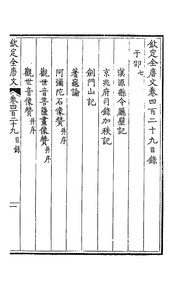 欽定全唐文卷四百二十九目錄
于邵七
漢源縣令廳壁記
京兆府司錄加秩記
劍門山記
蓍龜論
阿彌陀石像贊并序
觀世音菩薩畫像贊并序
觀世音像贊并序
欽定全唐文
卷四百二十九目錄
一